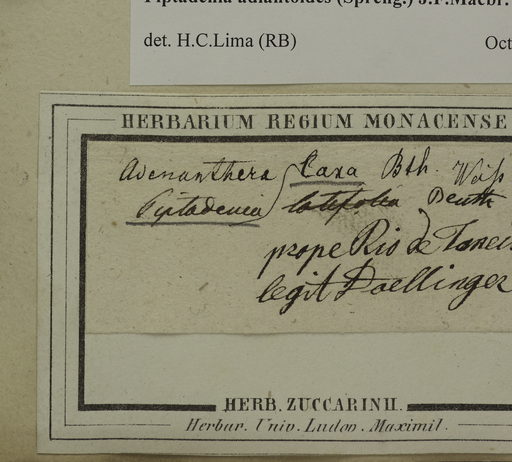 Piptadenia adiantoides (Spreng.) J.F.Macbr.
det. H.C.Lima (RB)
Oct
HERBARIUM REGIUM MONACENSE
Adenanthera laxa Bth.
Piptadenia latifolia Benth
prope Rio de Janei
legit Doellinger
HERB. ZUCCARINII.
Herbar. Univ. Ludov. Maximil.